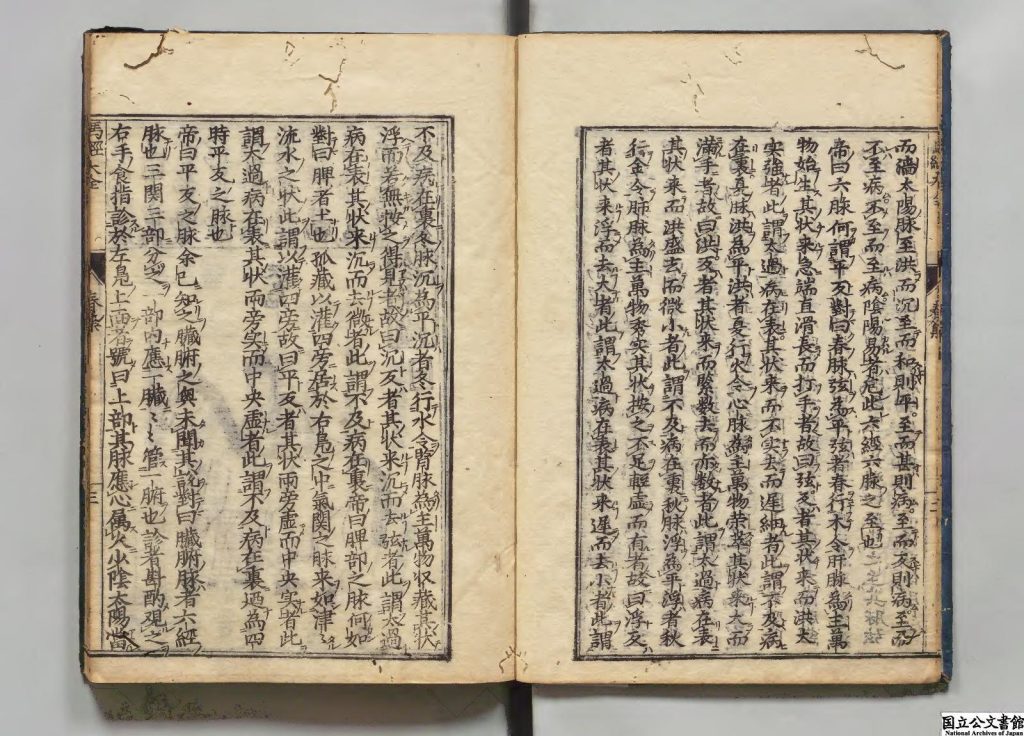 而濇太陽脉至洪而沉至而和則平至而甚則病至而反則病至而
不至病不至而至病陰陽易者危此六經六脉之至也
帝曰六脉何謂平反對曰春脉弦為平弦者春行木令肝脉為主萬
物始生其状来急端直滑長而打手者故曰弦反者其状来而洪大
実強者此謂太過病在表其状来而不実去而遅細者此謂不及病
在裏夏脉洪為平洪者夏行火令心脉為主萬物栄其状来大而
満手者故曰洪反者其状来而緊数去而亦数者此謂太過病在表
其状来而洪盛去而微小者此謂不及病在裏秋脉浮為平浮者秋
行金令肺脉為主萬物秀実其状按之不足軽虚而有者故曰浮反
者其状来浮而去大者此謂太過病在表其状来遅而去小者此謂
不及病在裏冬脉沉為平沉者冬行水令腎脉為主萬物収蔵其状
浮而若無按之得見者故曰沉反者其状来沉而去弦者此謂太過
病在表其状来沉而去微者此謂不及病在裏帝曰脾部之脉何如
對曰脾者土也孤蔵以灌四旁居於右鳧之中氣関之脉来如津〻
流水之状此謂以灌四旁故曰平反者其状両旁虚而中央実者此
謂太過病在表其状両旁実而中央虚者此謂不及病在裏過為四
時平反之脉也
帝曰平反之脉余已知之臓腑之與未聞其説對曰臓腑脉者六經
脉也三関三部分之一部内應一臓〻管一腑也診者斟酌観之
右手食指診於左鳧上而者號曰上部其脉應心属火少陰太陽當
馬經大全
春集
三
國立公文書館
National Archives of Japan